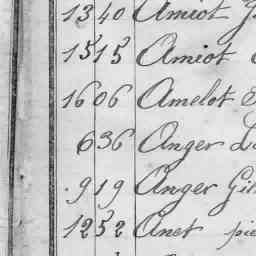 1340 Amiot
1515 Amiot
1606 Amelot
636 Anger
919 Anger
1252 Anet